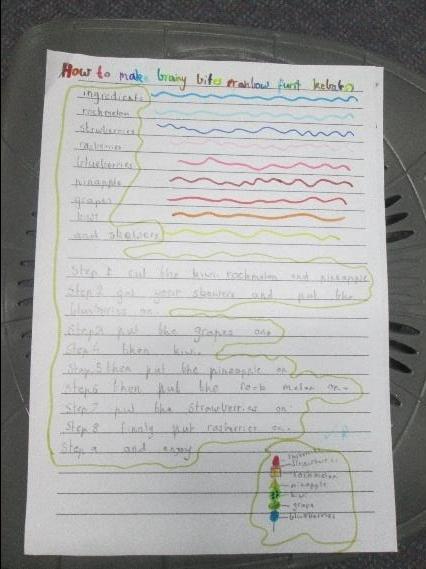 How to make brainy bites ranbow furit kebabs
ingredients
rockmelon
strawberries
rasberries
blueberries
pineapple
grapes
kiwi
and skewers
Step 1 cut the kiwi rockmelon and pineapple
Step 2 get your skewers and put the
bluebriss on.
Step 3 put the grapes on.
Step 4 then kiwi.
Step 5 then put the pineapple on
Step 6 then put the rock melon on.
Step 7 put the strawberries on.
Step 8 finnly put rasberries on.
Step 9 and enjoy
strawberries
rockmelon
pineapple
kiwi
grape
blueberries